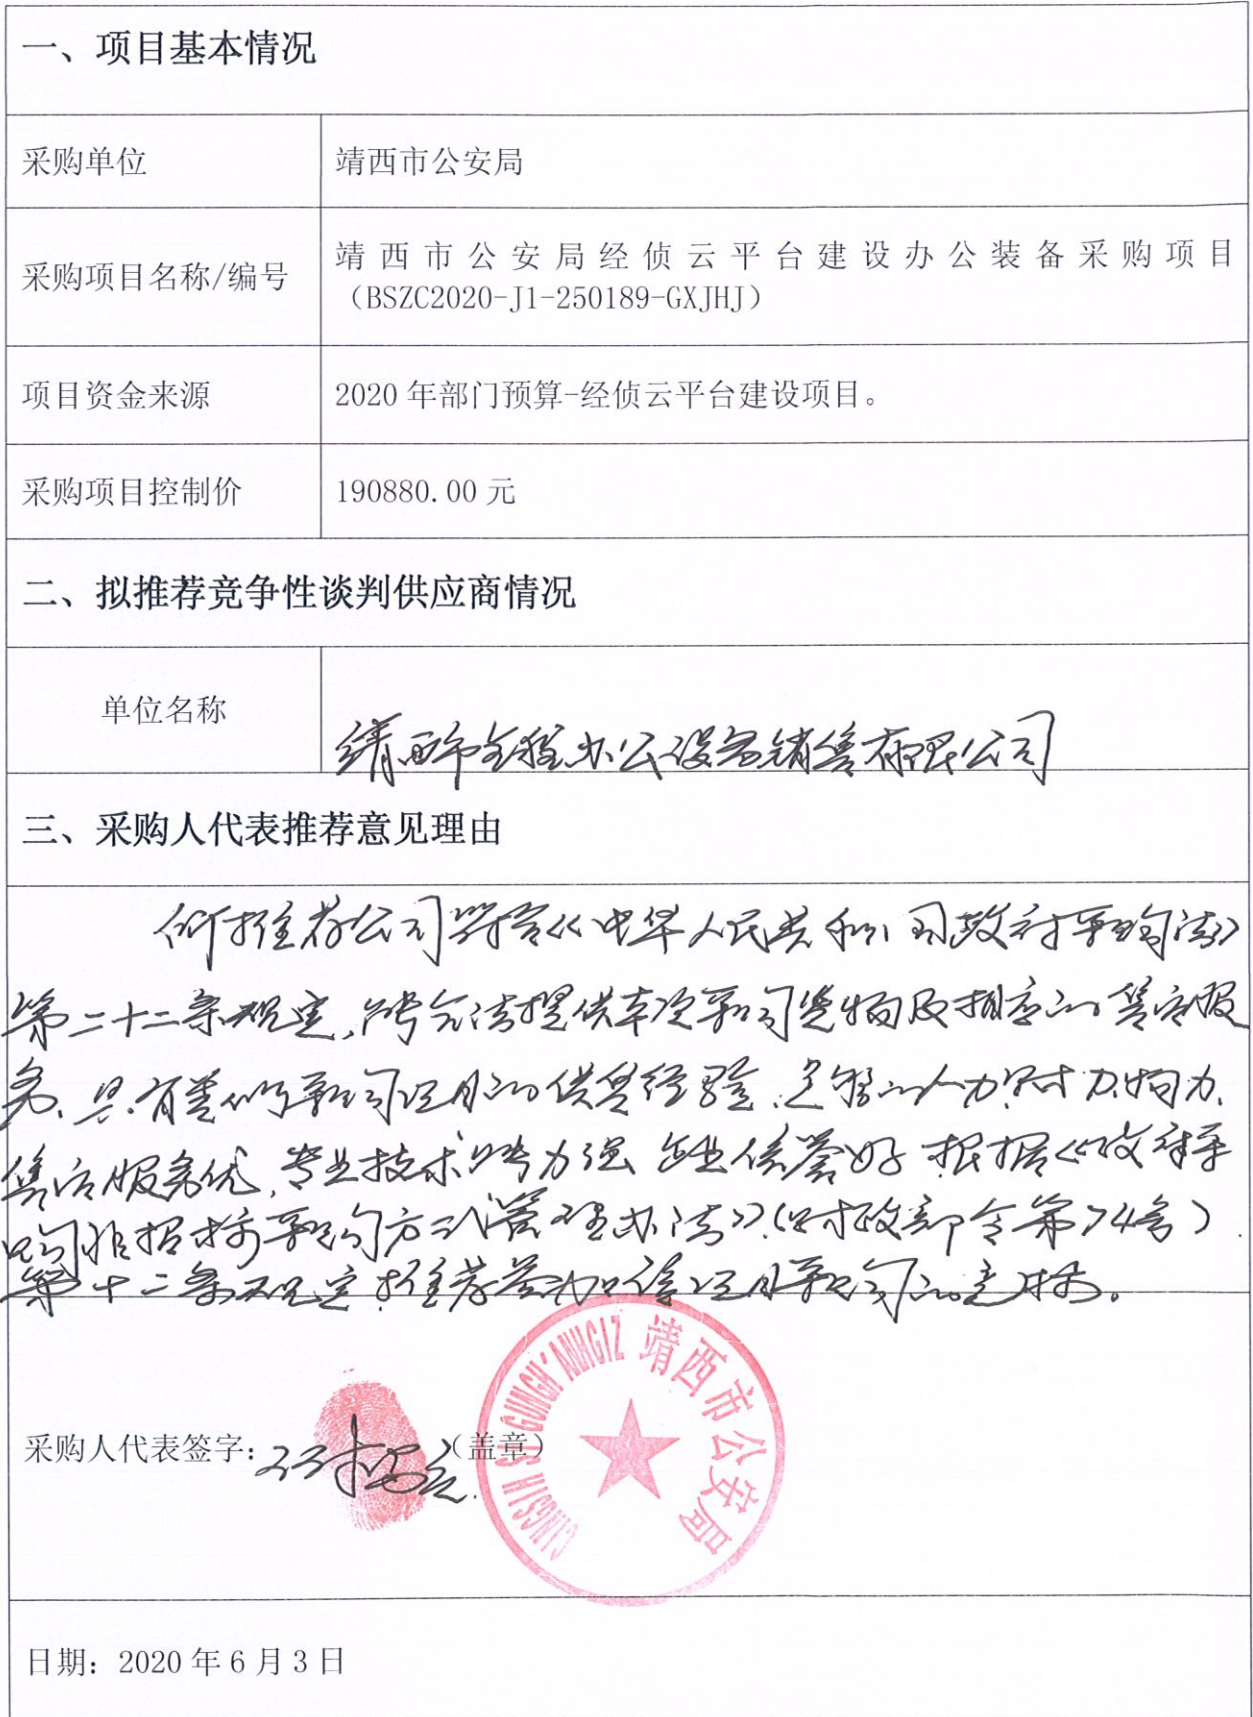 一、项目基本情况
采购单位
靖西市公安局
采购项目名称/编号
靖西市公安局经侦云平台建设办公装备采购项目
（BSZC2020-J1-250189-GXJHJ）
项目资金来源
2020年部门预算-经侦云平台建设项目。
采购项目控制价
190880.00元
二、拟推荐竞争性谈判供应商情况
单位名称
靖西市办公设备销售有限公司
三、采购人代表推荐意见理由
所推荐公司符合《中华人民共和国政府采购法》
第二十二条规定,能合法提供本次采购货物及相应的售后服
务、具有类似采购项目的供货经验,足够的人力.财力.物力.
售后服务优,专业技术能力强 企业信誉好 根据《政府采
购非招标采购方式管理办法》(财政部令第74号)
第十二条规定 推荐参加该项目采购的竞标。
采购人代表签字:
（盖章）
CINGSIH SI GUNGH'ANHGIZ 靖西市公安局
日期：2020年6月3日